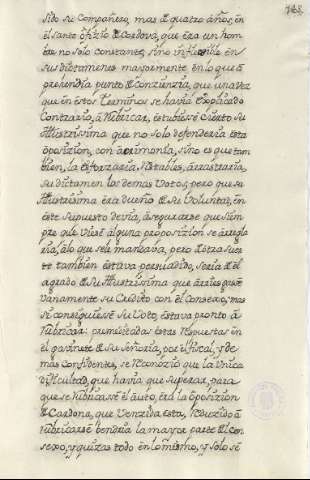 sido su Compañero, mas de quatro años, en
el santo ofizio de Cordova, que era un hom
bre no solo constante, sino inflexible en
sus dictamenes mayormente en lo que a
prehendia punto de Conzienzia, que una vez
que en estos terminos se havia explicado
Contrario, a rubricar, estubiese cierto su
Illustrisima que no solo defenderia esta
oposizion, con acrimonia, sino es que tam
bien, la esforzaria, y arrastraria,
su dictamen los demas votos; pero que su
Illustrisima era dueño de su Voluntad, en
este supuesto devia, asegurarse que siem
pre que viese alguna proposizion se arregla
ria, a lo que se le mandava, pero de otra suer
te tambien estava persuadido, seria del
agrado de su Illustrisima que arriesgase
vanamente su Credito con el Consexo, mas
si consiguiese su Voto, estava pronto a
rubricar: premeditadas estas Respuestas en
el gavinete de su Señoria, por el fiscal, y de
mas Confidentes, se Reconozio que la Unica
dificultad, que havia que superar, para
que se rubricasse el auto, era la oposizion
de Cardona, que Venzida esta, Reduzido a
rubricarse bendria la mayor parte del Con
sexo, y quizas todo en lo mismo, y solo se